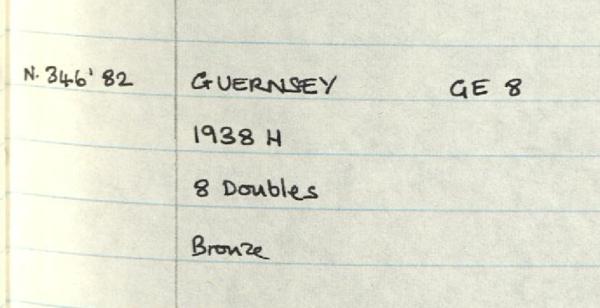 N. 346' 82 GUERNSEY GE 8
1938 H
8 Doubles
Bronze